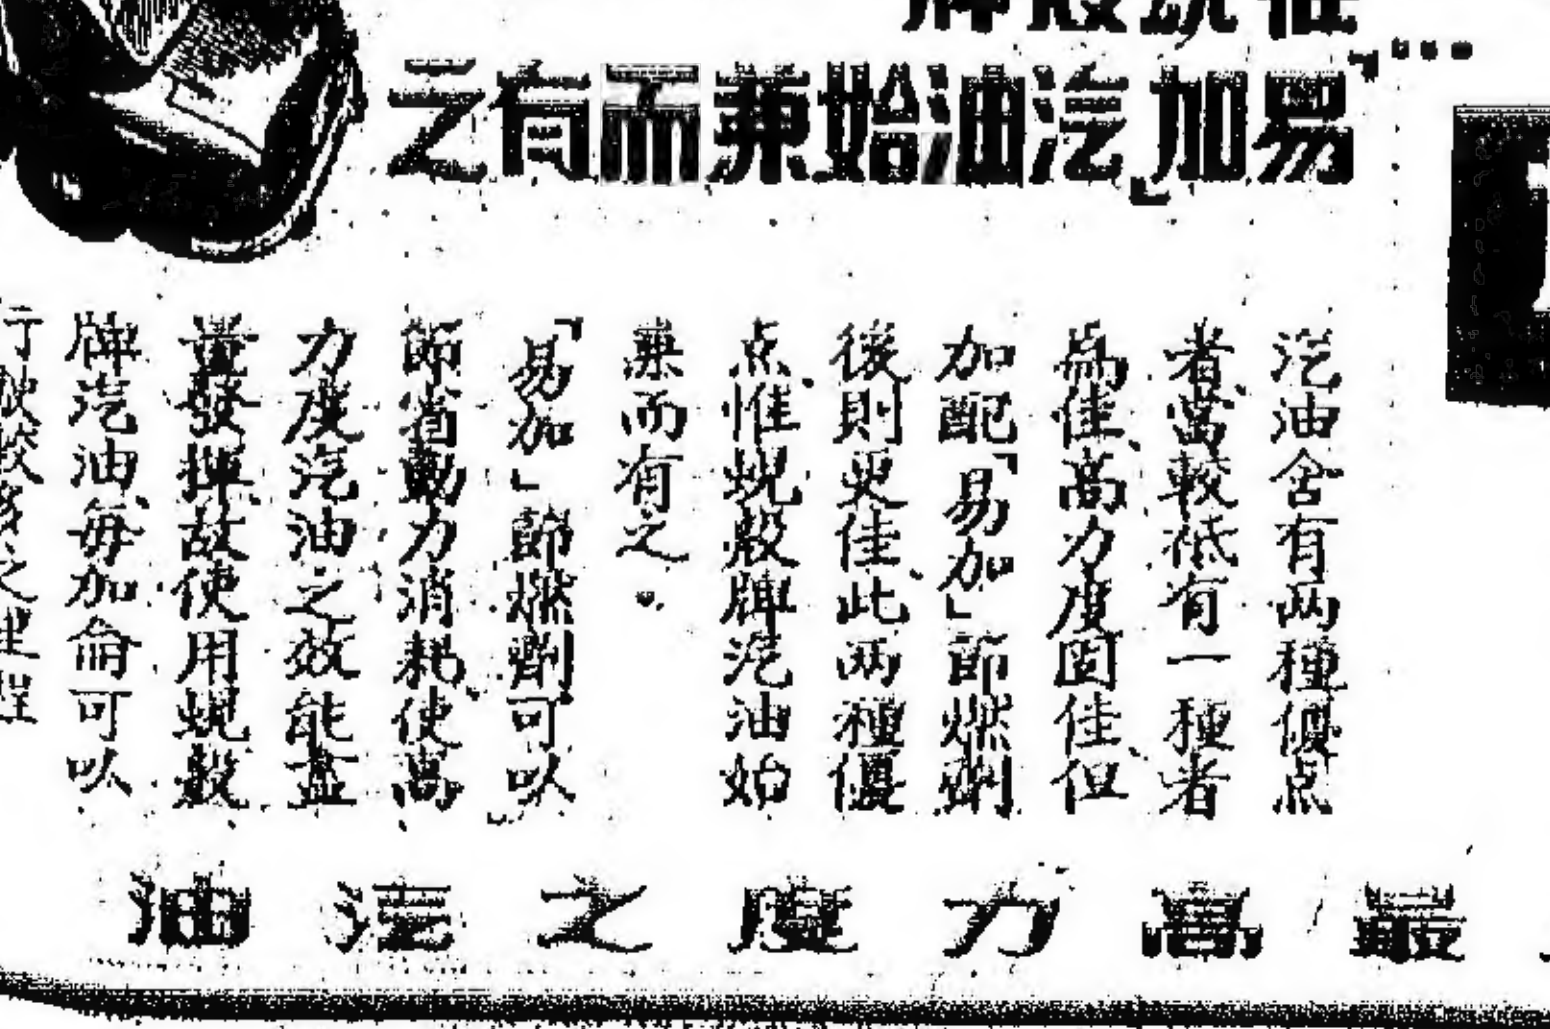 惟蜆殼牌
「易加」汽油始兼而有之
汽油含有兩種優点
者、當較祗有一種者
為佳、高力度固佳、但
加配「易加」節燃劑
後則更佳、此兩種優
点、惟蜆殼牌汽油始
兼而有之。
「易加」節燃劑可以
節省動力消耗、使高
力度汽油之效能盡
量發揮、故使用蜆殼
牌汽油、每加侖可以
行駛較多之里程
最高力度之汽油